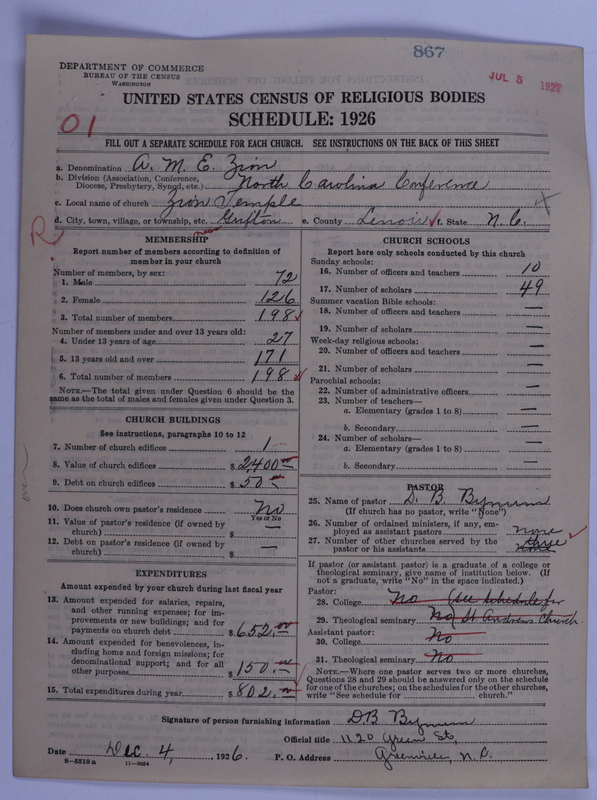 867
JUL 5 1927
DEPARTMENT OF COMMERCE
BUREAU OF THE CENSUS
WASHINGTON
UNITED STATES CENSUS OF RELIGIOUS BODIES
SCHEDULE: 1926
01
FILL OUT A SEPARATE SCHEDULE FOR EACH CHURCH. SEE INSTRUCTIONS ON THE BACK OF THIS SHEET
a. Denomination A. M. E. Zion
b. Division (Association, Conference, Diocese, Presbytery, Synod, etc.) North Carolina Conference
c. Local name of church Zion Temple
d. City, town, village, or township, etc. Grifton e. County Lenoir f. State N. C.
R
MEMBERSHIP
Report number of members according to definition of member in your church
Number of members, by sex:
1. Male 72
2. Female 126
3. Total number of members 198
Number of members under and over 13 years old:
4. Under 13 years of age 27
5. 13 years old and over 171
6. Total number of members 198
NOTE.—The total given under Question 6 should be the same as the total of males and females given under Question 3.
CHURCH BUILDINGS
See instructions, paragraphs 10 to 12
7. Number of church edifices 1
8. Value of church edifices $2400.00
9. Debt on church edifices $50.00
10. Does church own pastor's residence No
Yes or No
11. Value of pastor's residence (if owned by church) $ —
12. Debt on pastor's residence (if owned by church) $ —
EXPENDITURES
Amount expended by your church during last fiscal year
13. Amount expended for salaries, repairs, and other running expenses; for improvements or new buildings; and for payments on church debt $652.00
14. Amount expended for benevolences, including home and foreign missions; for denominational support; and for all other purposes $150.00
15. Total expenditures during year $802.00
CHURCH SCHOOLS
Report here only schools conducted by this church
Sunday schools:
16. Number of officers and teachers 10
17. Number of scholars 49
Summer vacation Bible schools:
18. Number of officers and teachers —
19. Number of scholars —
Week-day religious schools:
20. Number of officers and teachers —
21. Number of scholars —
Parochial schools:
22. Number of administrative officers —
23. Number of teachers—
a. Elementary (grades 1 to 8) —
b. Secondary —
24. Number of scholars—
a. Elementary (grades 1 to 8) —
b. Secondary —
PASTOR
25. Name of pastor D. B. Bynum
(If church has no pastor, write "None")
26. Number of ordained ministers, if any, employed as assistant pastors none
27. Number of other churches served by the pastor or his assistants none
If pastor (or assistant pastor) is a graduate of a college or theological seminary, give name of institution below. (If not a graduate, write "No" in the space indicated.)
Pastor:
28. College No (See Schedule for
29. Theological seminary No St Andrews Church
Assistant pastor:
30. College No
31. Theological seminary No
NOTE.—Where one pastor serves two or more churches, Questions 28 and 29 should be answered only on the schedule for one of the churches; on the schedules for the other churches, write "See schedule for church."
Signature of person furnishing information DB Bynum
Official title 1120 Green St,
Date Dec. 4, 1926. P. O. Address Greenville, N. C.
8—5518a 11—9054